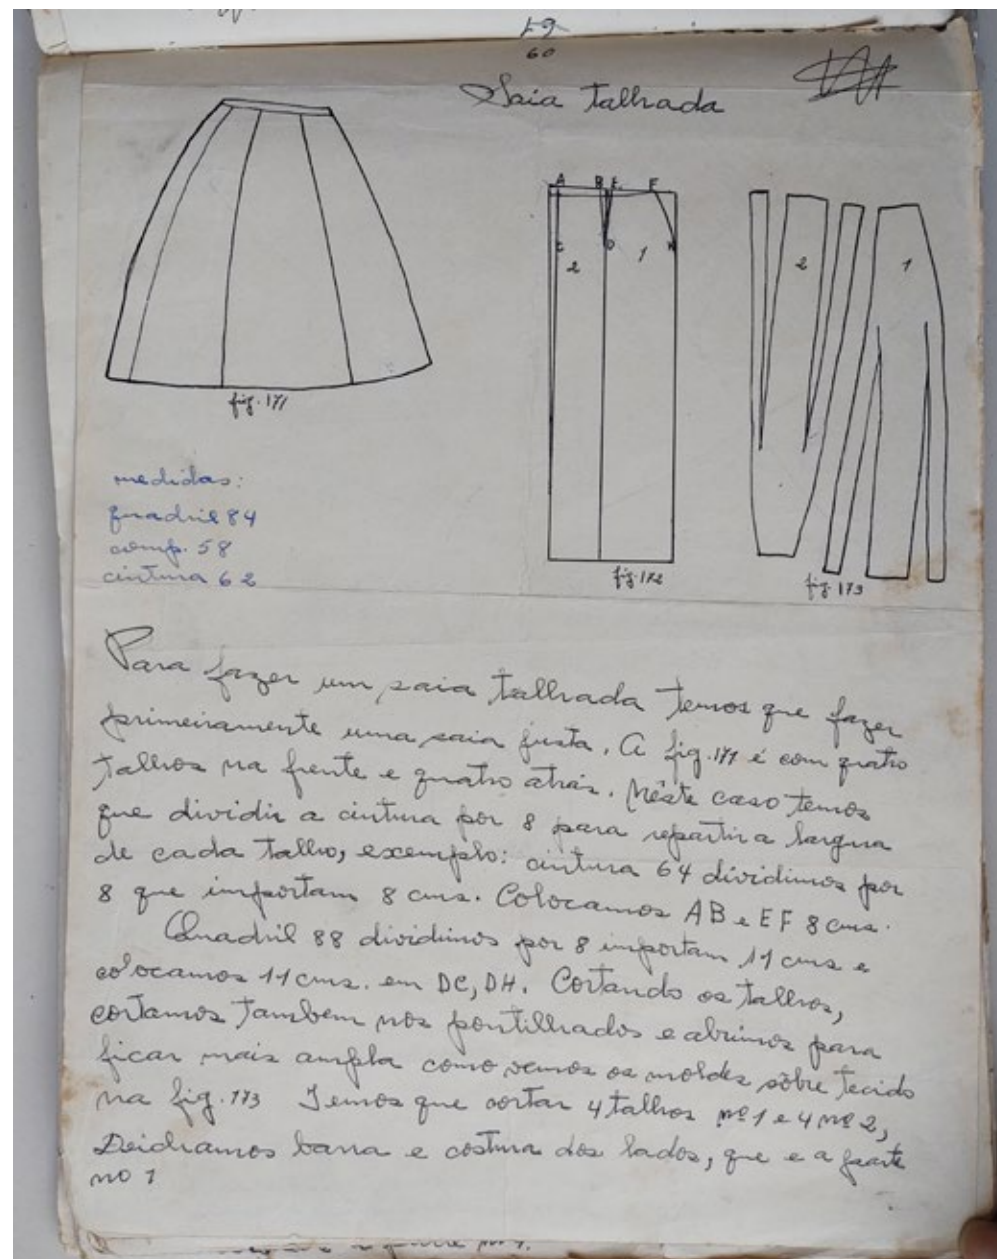 60
Saia talhada
A B E F
C D H
2 1
2 1
fig. 171
fig. 172
fig. 173
medidas:
quadril 84
comp. 58
cintura 62
Para fazer um saia talhada temos que fazer
primeiramente uma saia justa. A fig. 171 é com quatro
talhos na frente e quatro atrás. Nêste caso temos
que dividir a cintura por 8 para repartir a largura
de cada talho, exemplo: cintura 64 dividimos por
8 que importam 8 cms. Colocamos AB e EF 8 cms.
Quadril 88 dividimos por 8 importam 11 cms e
colocamos 11 cms. em DC, DH. Cortando os talhos,
cortamos tambem nos pontilhados e abrimos para
ficar mais ampla como vemos os moldes sôbre tecido
na fig. 173 Temos que cortar 4 talhos nº 1 e 4 nº 2,
Deichamos barra e costura dos lados, que e a parte
no 1